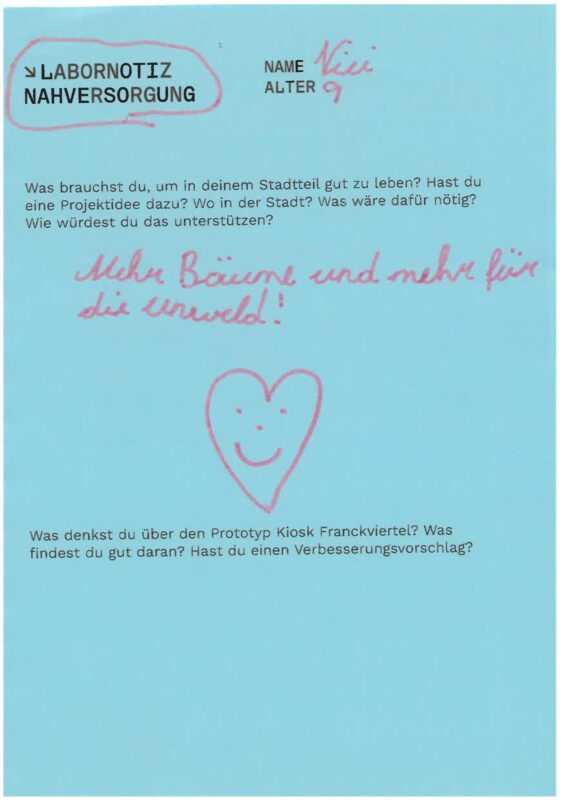 ↘LABORNOTIZ
NAHVERSORGUNG
NAME Vici
ALTER 9
Was brauchst du, um in deinem Stadtteil gut zu leben? Hast du
eine Projektidee dazu? Wo in der Stadt? Was wäre dafür nötig?
Wie würdest du das unterstützen?
Mehr Bäume und mehr für
die umweld!
Was denkst du über den Prototyp Kiosk Franckviertel? Was
findest du gut daran? Hast du einen Verbesserungsvorschlag?